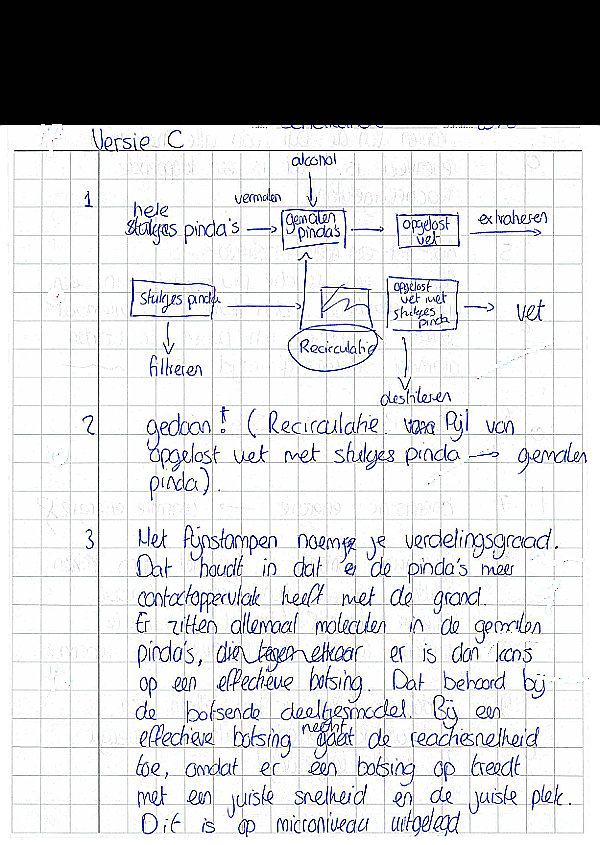 Versie C
alcohol
1
vermalen
hele
pinda's
gemalen
pinda's
opgelost
vet
extraheren
stukjes pinda
opgelost
vet met
stukjes
pinda
vet
Recirculatie
filtreren
destileren
2 gedaan! (Recirculatie Pijl van
opgelost vet met stukjes pinda → gemalen
pinda).
3 Het fijnstampen noem je verdelingsgraad.
Dat houdt in dat de pinda's meer
contactoppervlak heeft met de grond.
Er zitten allemaal moleculen in de gemalen
pinda's, die tegen elkaar er is dan kans
op een effectieve botsing. Dat behoord bij
de botsende deeltjesmodel. Bij een
effectieve botsing neemt de reactiesnelheid
toe, omdat er een botsing op treedt
met een juiste snelheid en de juiste plek.
Dit is op microniveau uitgelegd